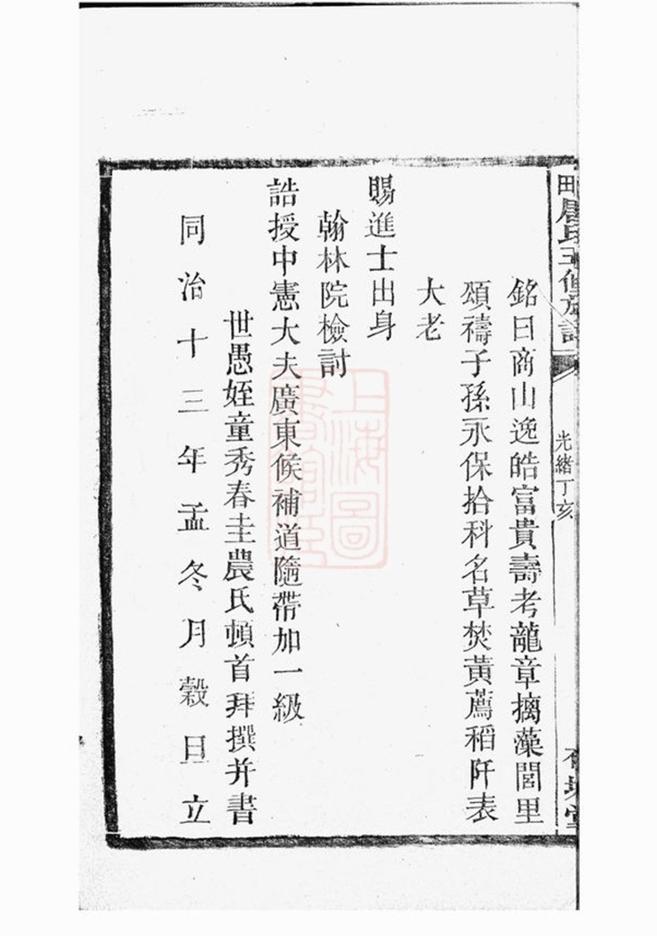 銘曰商山逸皓富貴壽考龍章摛藻閭里
頌禱子孫永保拾科名草焚黃薦稻阡表
大老
賜進士出身
翰林院檢討
誥授中憲大夫廣東候補道隨帶加一級
世愚姪童秀春圭農氏頓首拜撰并書
同治十三年孟冬月穀旦立
光緒丁亥
上海圖